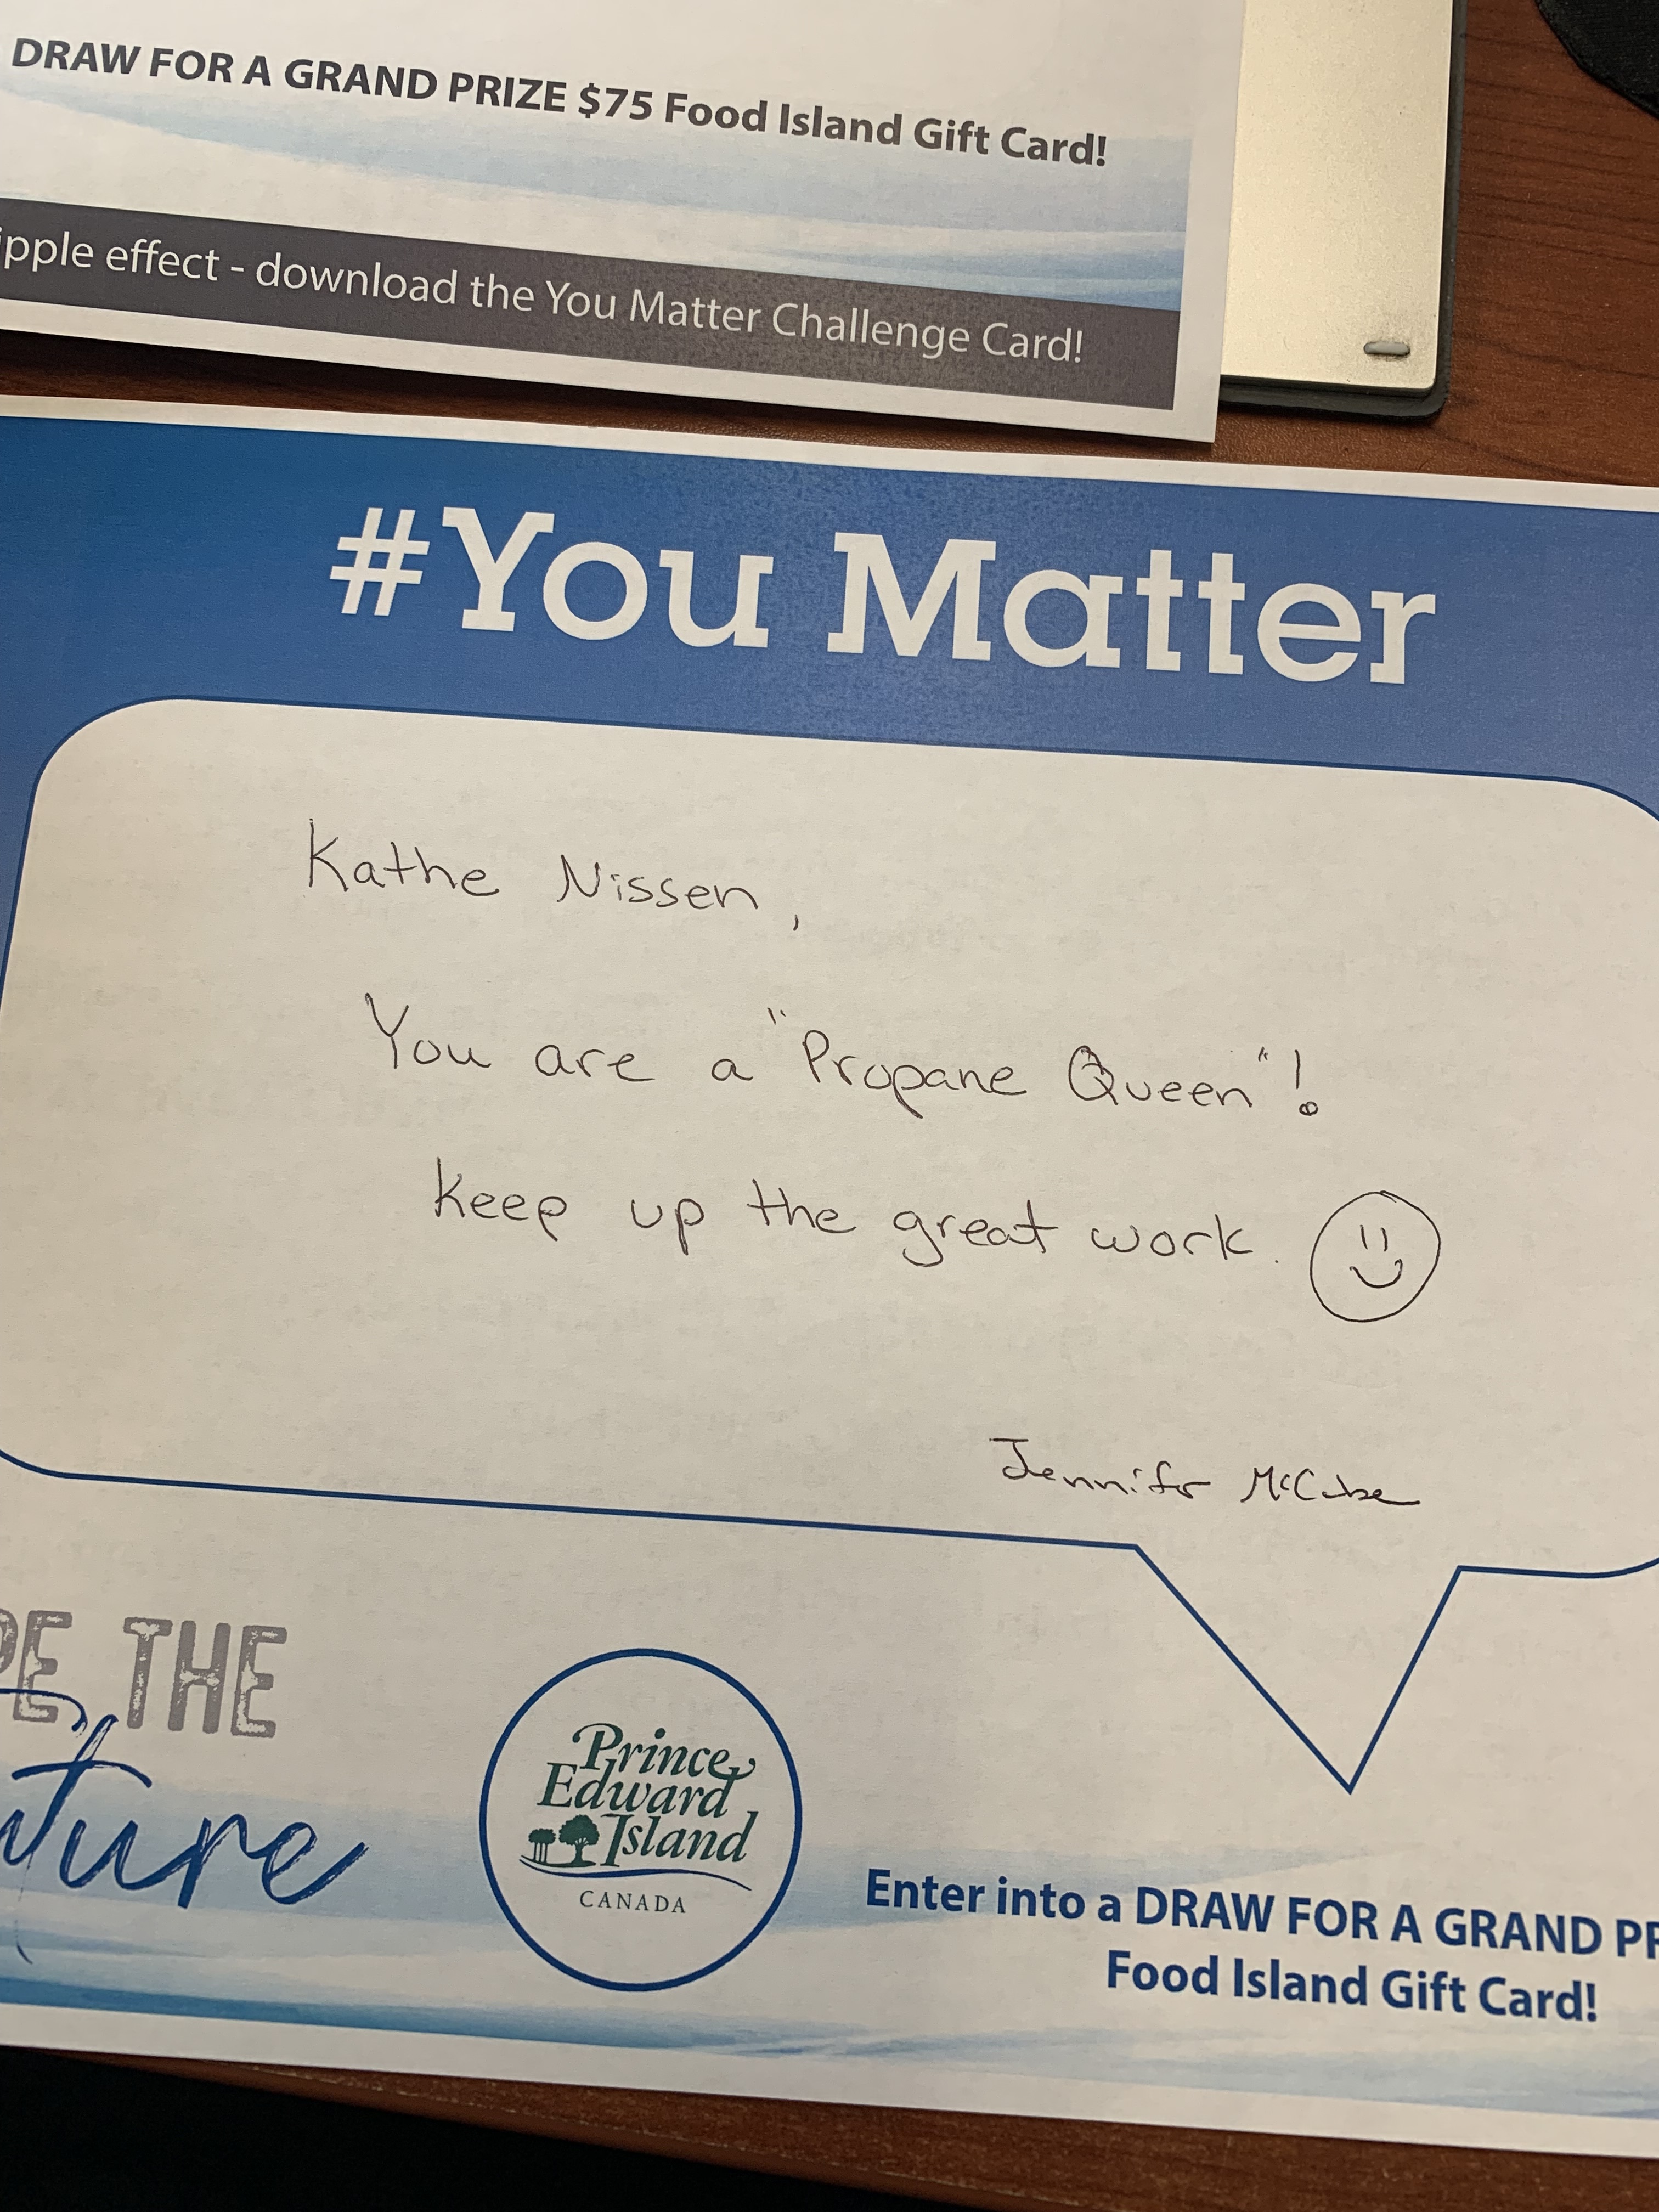 DRAW FOR A GRAND PRIZE $75 Food Island Gift Card!
ipple effect - download the You Matter Challenge Card!
#You Matter
Kathe Nissen,
You are a "Propane Queen"!
Keep up the great work.
Jennifer McCabe
PE THE
ture
Prince
Edward
Island
CANADA
Enter into a DRAW FOR A GRAND PR
Food Island Gift Card!